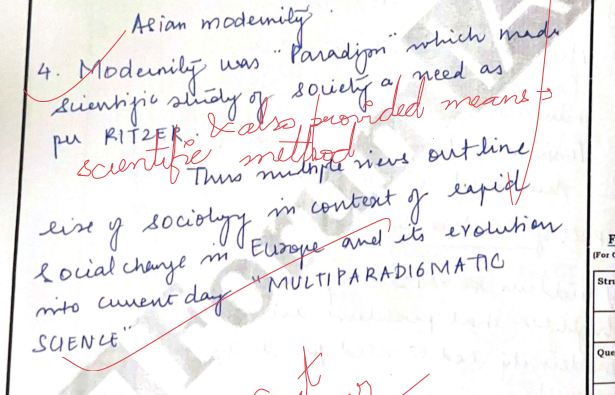 Asian modernity.
4. Modernity was "Paradigm" which made
scientific study of society a need as
per RITZER. & also provided means →
scientific method
Thus multiple views outline
rise of sociology in context of rapid
social change in Europe and its evolution
into current day "MULTIPARADIGMATIC
SCIENCE"
Forum
(For
Stru
Que